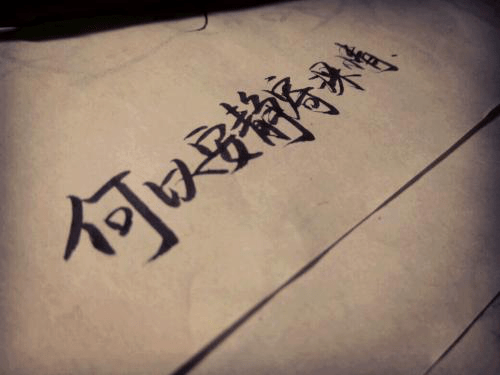 何以安静寄深情.